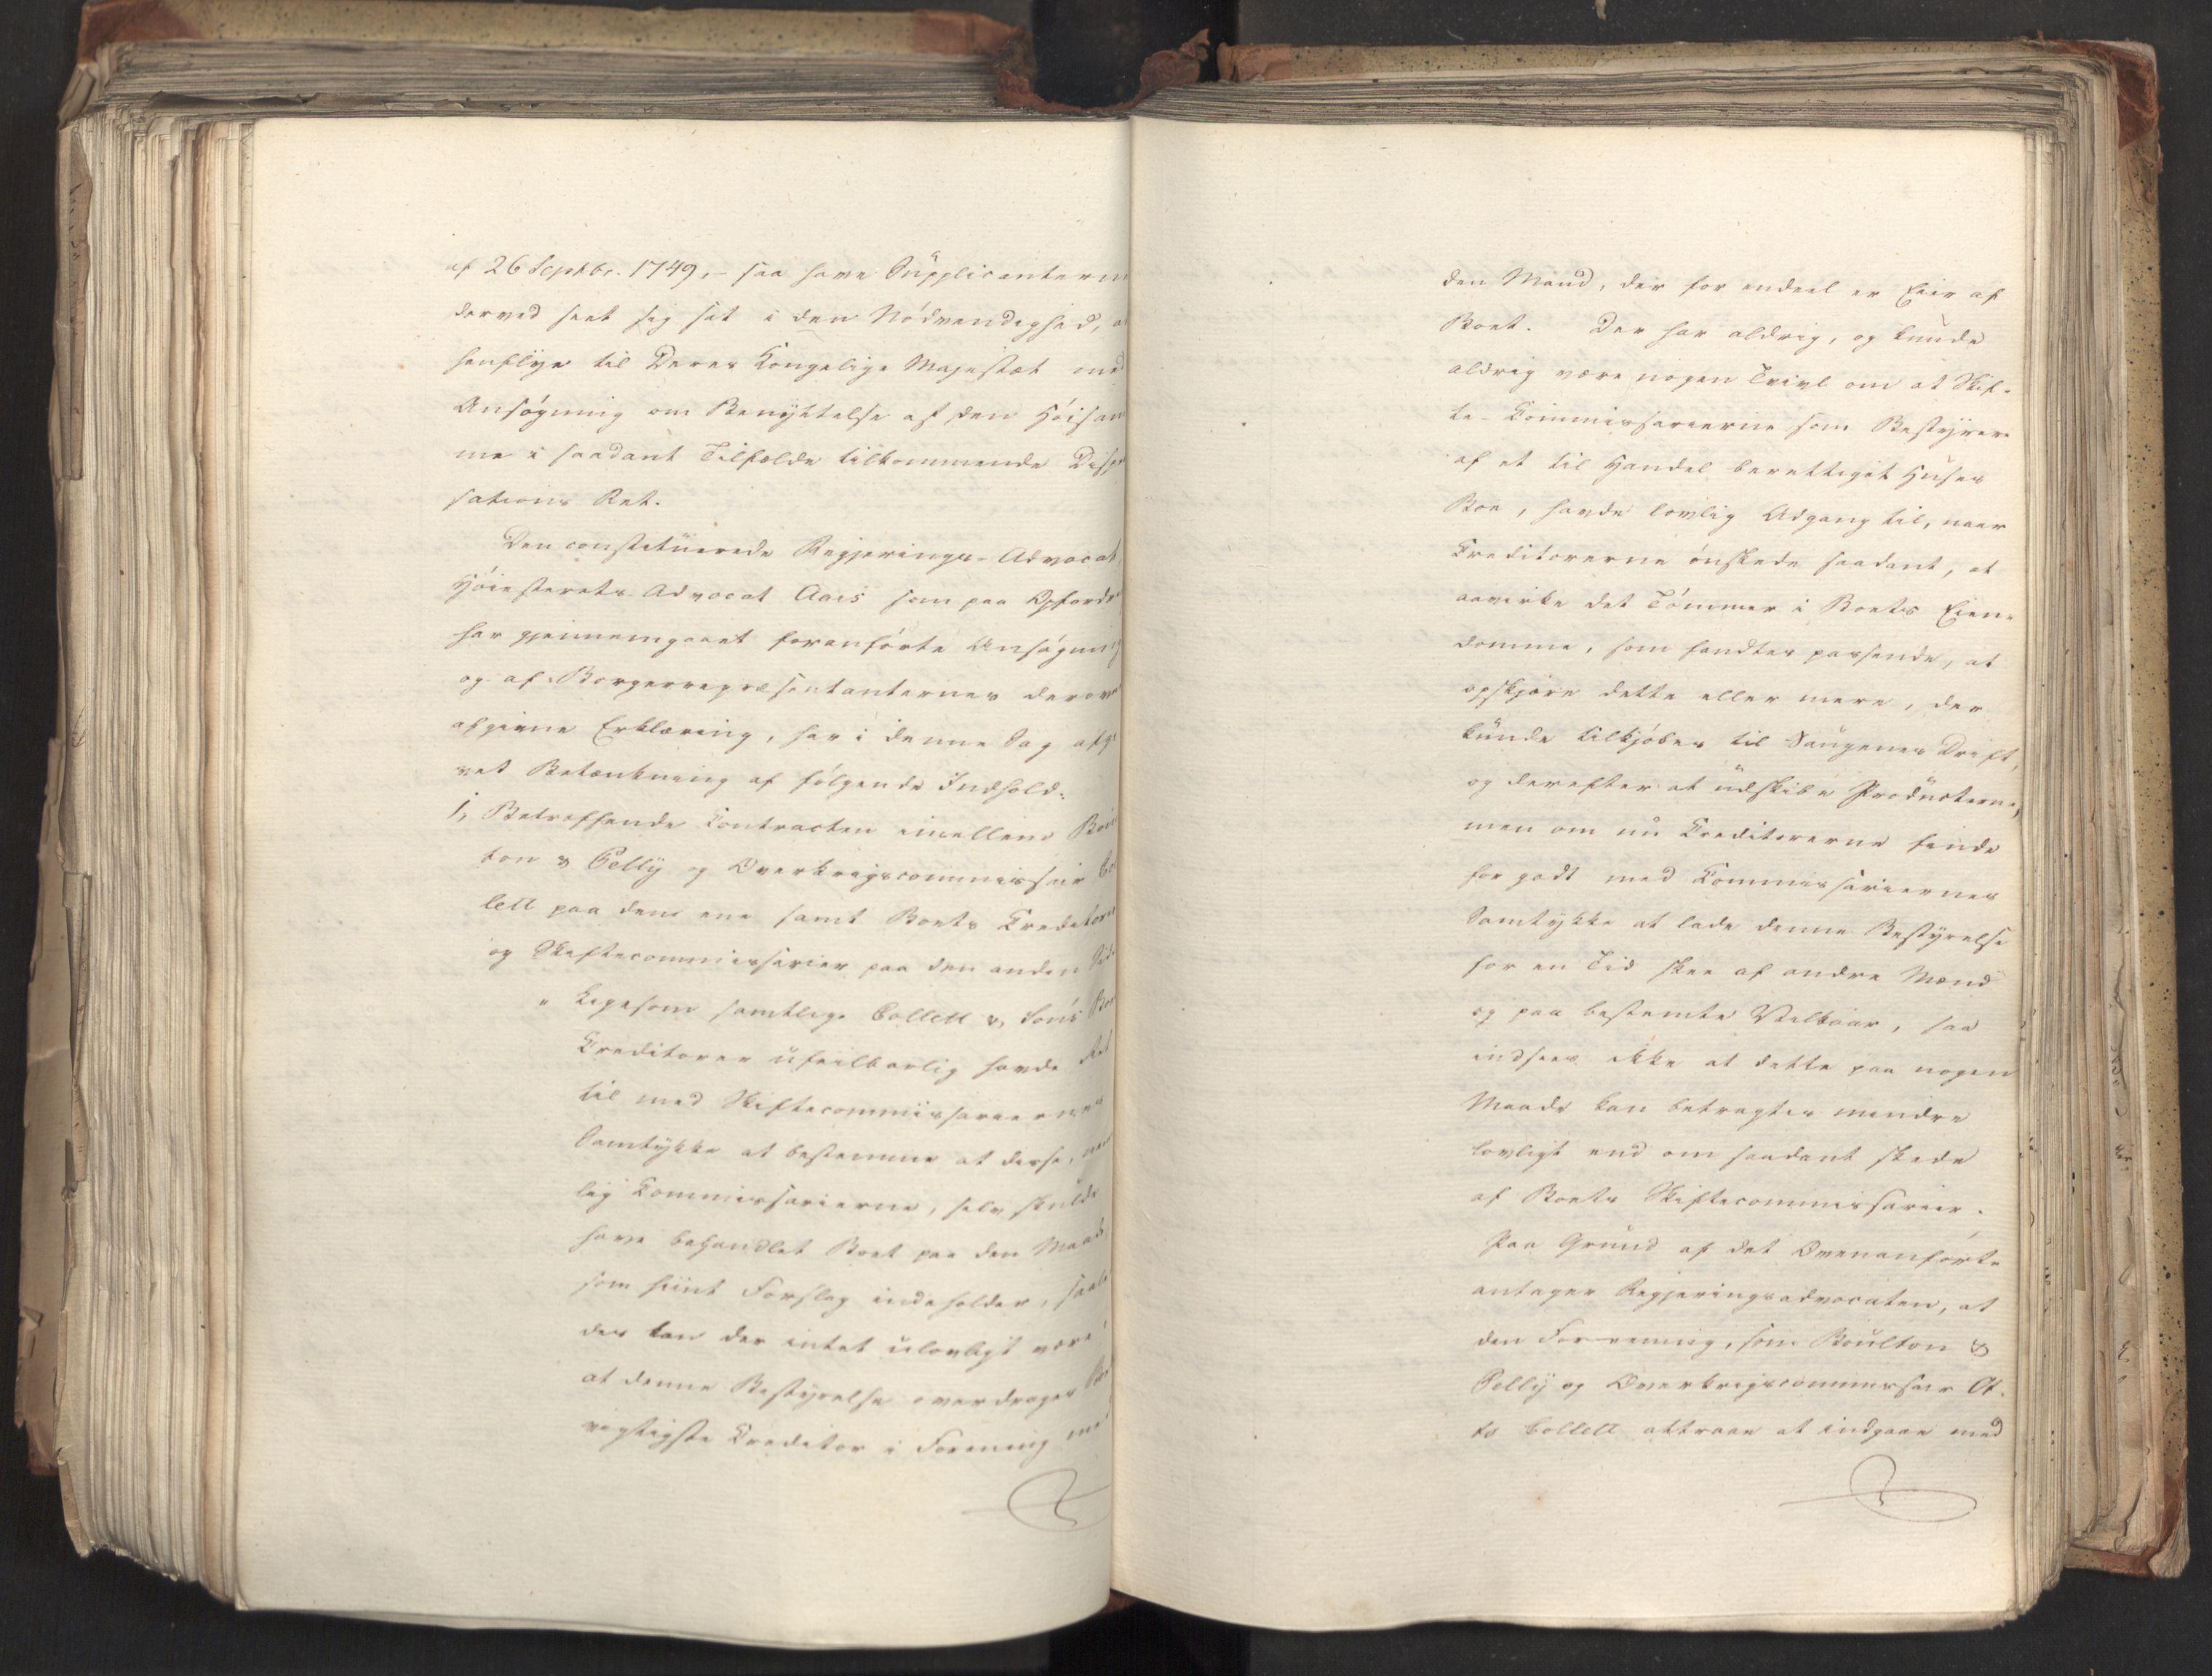 af 26 Septbr. 1749, - saa have Supplicanterne
derved seet sig sat i den Nödvendighed, at
henflye til Deres Kongelige Majestæt med
Ansögning om Benyttelse af den Höisam
me i saadant Tilfælde tilkommende Dispen
sations Ret.
Den constituerede Regjerings-Advocat,
Höiesterets Advocat Aars som paa Opfordr
har gjennemgaaet foranförte Ansögning
og af Borgerrepræsentanternes derover
afgivne Erklæring, har i denne Sag afgi
vet Betænkning af fölgende Indhold:
1, Betræffende Contracten imellem Boul
ton & Pelly og Overkrigscommissair Col
lett paa den ene samt Boets Creditorer
og Skiftecommissarier paa den anden Side
" Ligesom samtlige Collett & Söns Boes
Creditorer ufeilbarlig havde Ret
til med Skiftecommissariernes
Samtykke at bestemme at disse, nem
lig Commissarierne, selv skulde
have behandlet Boet paa den Maade
som hiint Forslag indeholder, saale
des kan der intet ulovligt være i
at denne Bestyrelse overdrages Boets
vigtigste Creditor i Forening med
den Mand, der for endeel er Eier af
Boet. Der har aldrig, og kunde
aldrig være nogen Tvivl om at Skif-
te-Commissarierne som Bestyrere
af et til Handel berettiget Huses
Boe, havde lovlig Adgang til, naar
Creditorerne önskede saadant, at
aavirke det Tömmer i Boets Eien-
domme, som fandtes passende, at
opskjære dette eller mere, der
kunde tilkjöbes til Saugenes Drift,
og derefter at udskibe Producterne,
men om nu Creditorerne finde
for godt med Commissariernes
Samtykke at lade denne Bestyrelse
for en Tid skee af andre Mænd
og paa bestemte Vilkaar, saa
indsees ikke at dette paa nogen
Maade kan betragtes mindre
lovligt end om saadant skede
af Boets Skiftecommissarier.
Paa Grund af det Ovenanförte
antager Regjeringsadvocaten, at
den Forening, som Boulton &
Pelly og Overkrigscommissair Ot-
to Collett attraae at indgaae med